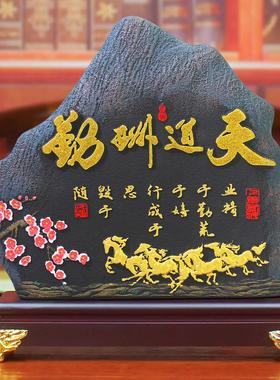 天道酬勤
业精
于勤荒
于嬉
行成于
思
毁于
随